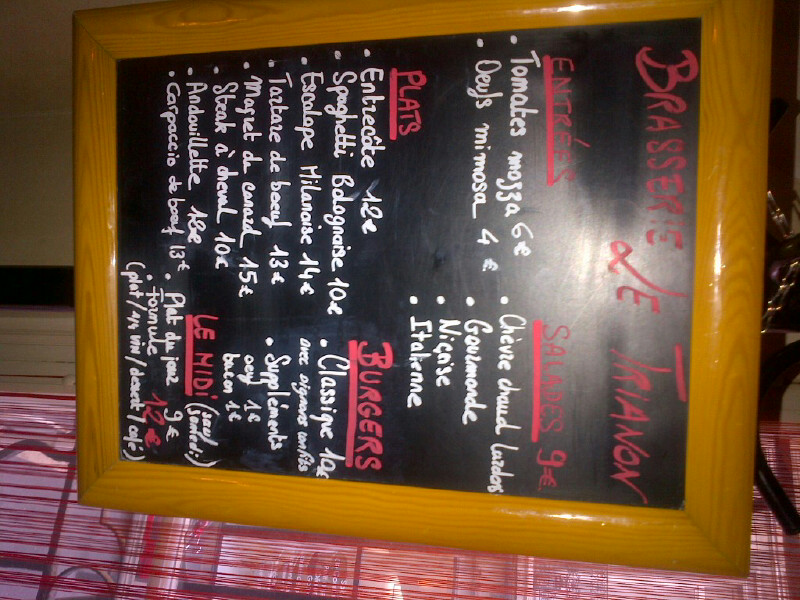 BRASSERIE LE TRIANON
ENTRÉES
• Tomates mozza 6€
• Oeufs mimosa 4€
SALADES 9€
• Chèvre chaud lardons
• Gourmande
• Niçoise
• Italienne
PLATS
• Entrecôte 18€
• Spaghetti Bolognaise 10€
• Escalope Milanaise 14€
• Tartare de boeuf 13€
• Magret du canard 15€
• Steak à cheval 10€
• Andouillette 18€
• Carpaccio de boeuf 13€
BURGERS
• Classique 10€
avec oignons confits
• Suppléments
oeuf 1€
bacon 1€
LE MIDI (sauf
samedi)
• Plat du jour 9€
• Formule 12€
(plat/ vin/dessert/café)